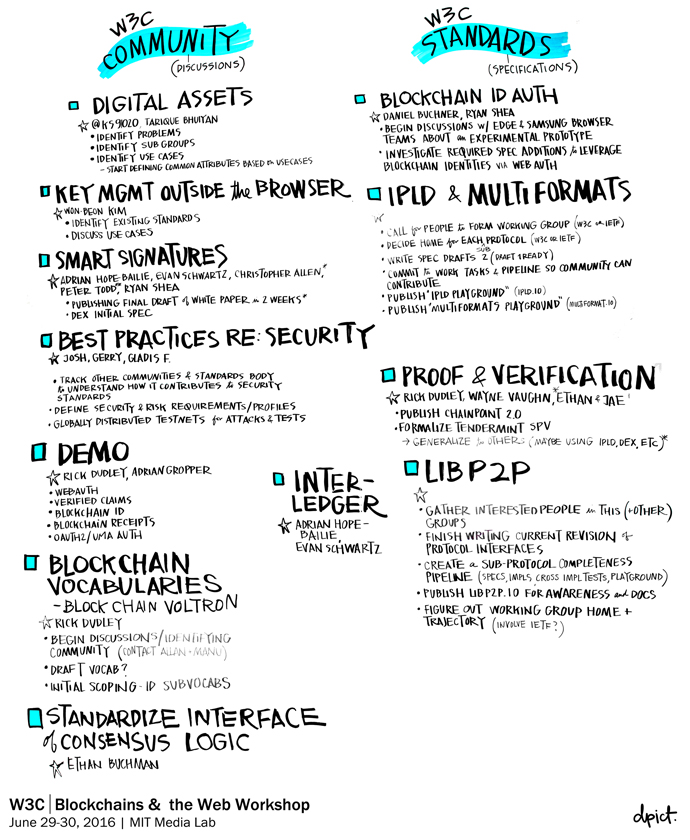 W3C
COMMUNITY
(DISCUSSIONS)
DIGITAL ASSETS
@KS91020, TARIQUE BHUIYAN
• IDENTIFY PROBLEMS
• IDENTIFY SUB GROUPS
• IDENTIFY USE CASES
- START DEFINING COMMON ATTRIBUTES BASED ON USECASES
KEY MGMT OUTSIDE the BROWSER
WON-BEON KIM
• IDENTIFY EXISTING STANDARDS
• DISCUSS USE CASES
SMART SIGNATURES
ADRIAN HOPE-BAILIE, EVAN SCHWARTZ, CHRISTOPHER ALLEN,*
PETER TODD,* RYAN SHEA
• PUBLISHING FINAL DRAFT of WHITE PAPER in 2 WEEKS*
• DEX INITIAL SPEC
BEST PRACTICES RE: SECURITY
JOSH, GERRY, GLADIS F.
• TRACK OTHER COMMUNITIES & STANDARDS BODY
to UNDERSTAND HOW IT CONTRIBUTES to SECURITY
STANDARDS
• DEFINE SECURITY & RISK REQUIREMENTS/PROFILES
• GLOBALLY DISTRIBUTED TESTNETS for ATTACKS & TESTS
DEMO
RICK DUDLEY, ADRIAN GROPPER
• WEBAUTH
• VERIFIED CLAIMS
• BLOCKCHAIN ID
• BLOCKCHAIN RECEIPTS
• OAUTH2/UMA AUTH
INTER-
LEDGER
ADRIAN HOPE-
BAILIE,
EVAN SCHWARTZ
BLOCKCHAIN
VOCABULARIES
- BLOCK CHAIN VOLTRON
RICK DUDLEY
• BEGIN DISCUSSIONS/IDENTIFYING
COMMUNITY (CONTACT ALLAN + MANU)
• DRAFT VOCAB?
• INITIAL SCOPING - ID SUBVOCABS
STANDARDIZE INTERFACE
of CONSENSUS LOGIC
ETHAN BUCHMAN
W3C
STANDARDS
(SPECIFICATIONS)
BLOCKCHAIN ID AUTH
DANIEL BUCHNER, RYAN SHEA
• BEGIN DISCUSSIONS W/ EDGE & SAMSUNG BROWSER
TEAMS ABOUT an EXPERIMENTAL PROTOTYPE
• INVESTIGATE REQUIRED SPEC ADDITIONS to LEVERAGE
BLOCKCHAIN IDENTITIES VIA WEB AUTH
IPLD & MULTI FORMATS
• CALL for PEOPLE to FORM WORKING GROUP (W3C or IETF)
• DECIDE HOME for EACH SUB PROTOCOL (W3C or IETF)
• WRITE SPEC DRAFTS 2 (DRAFT 1 READY)
• COMMIT to WORK TASKS & PIPELINE SO COMMUNITY CAN
CONTRIBUTE
• PUBLISH "IPLD PLAYGROUND" (IPLD.IO)
• PUBLISH "MULTIFORMATS PLAYGROUND" (MULTIFORMAT.IO)
PROOF & VERIFICATION
RICK DUDLEY, WAYNE VAUGHN, *ETHAN & JAE*
• PUBLISH CHAINPOINT 2.0
• FORMALIZE TENDERMINT SPV
→ GENERALIZE to OTHERS (MAYBE USING IPLD, DEX, ETC)*
LIB P2P
• GATHER INTERESTED PEOPLE in THIS (+ OTHER)
GROUPS
• FINISH WRITING CURRENT REVISION of
PROTOCOL INTERFACES
• CREATE a SUB-PROTOCOL COMPLETENESS
PIPELINE (SPECS, IMPLS, CROSS IMPL TESTS, PLAYGROUND)
• PUBLISH LIBP2P.IO FOR AWARENESS and DOCS
• FIGURE OUT WORKING GROUP HOME +
TRAJECTORY (INVOLVE IETF?)
W3C | Blockchains & the Web Workshop
June 29-30, 2016 | MIT Media Lab
dpict.